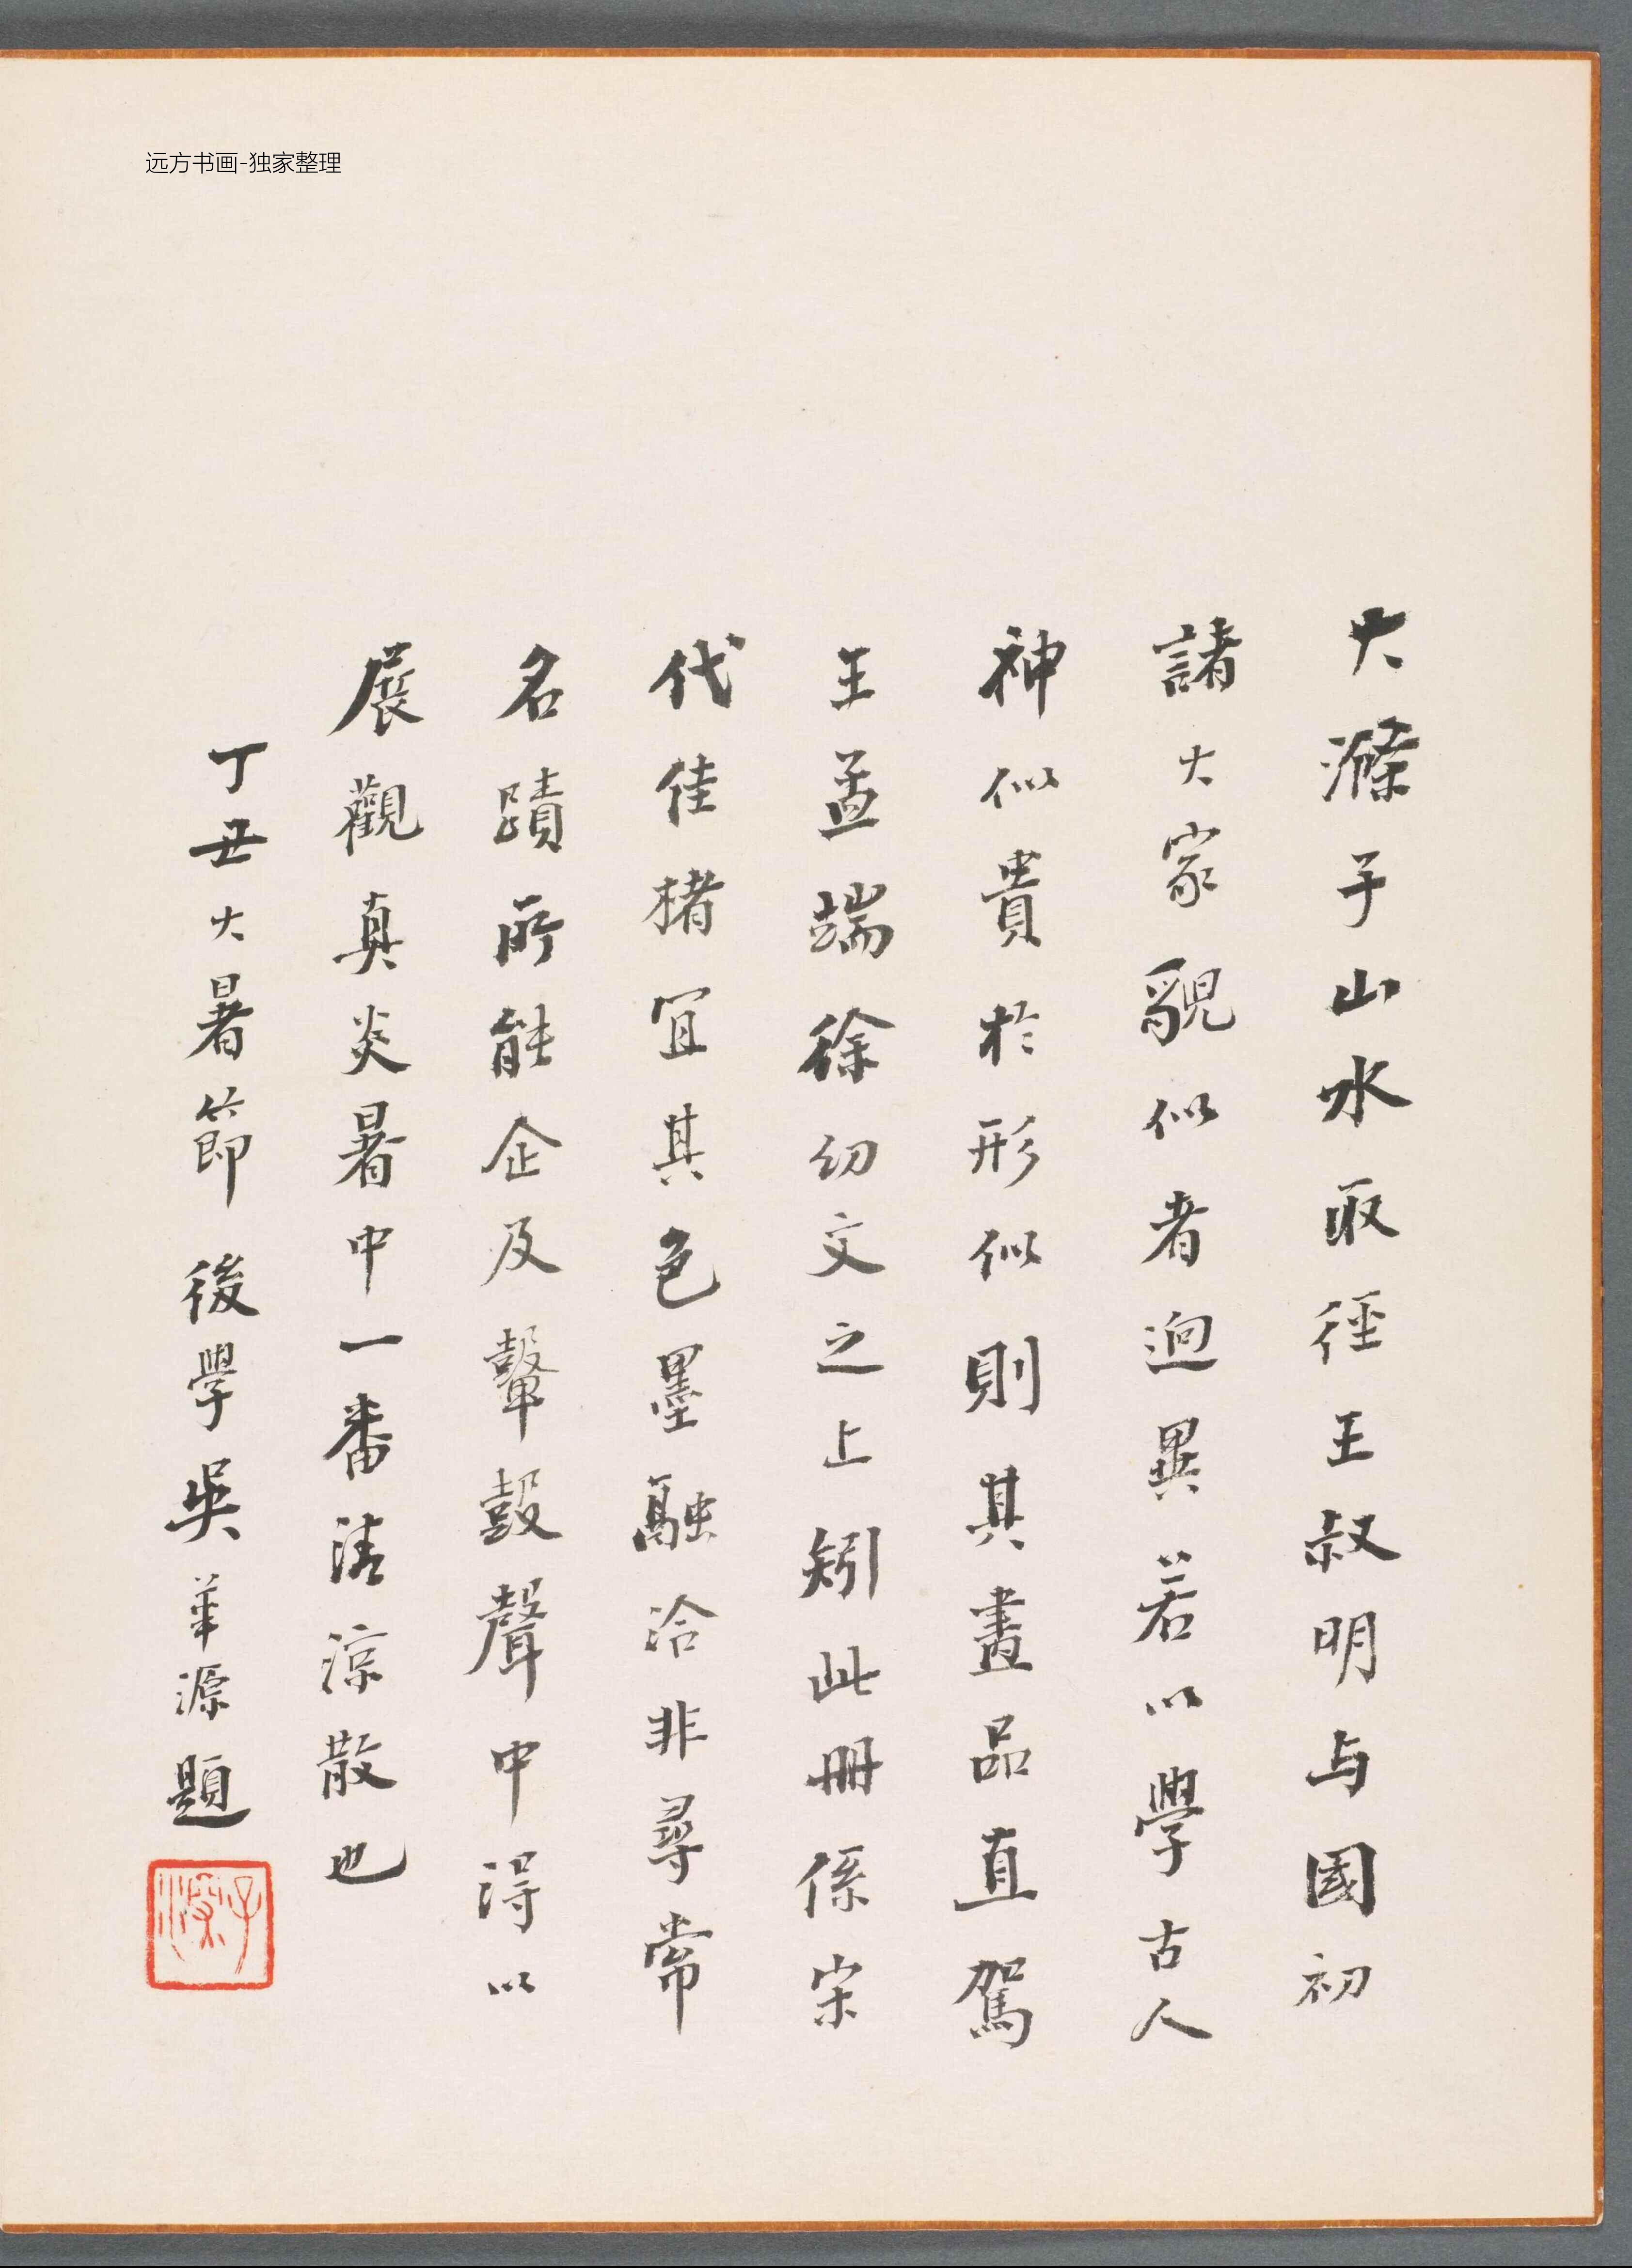 远方书画-独家整理
大滌子山水取徑王叔明与國初
諸大家貌似者迥異若以學古人
神似貴於形似則其畫品直駕
王孟端徐幼文之上矧此冊係宋
代佳楮宜其色墨融洽非尋常
名蹟所能企及鼙鼓聲中得以
展觀真炎暑中一番清涼散也
丁丑大暑節後學吳華源題
子深